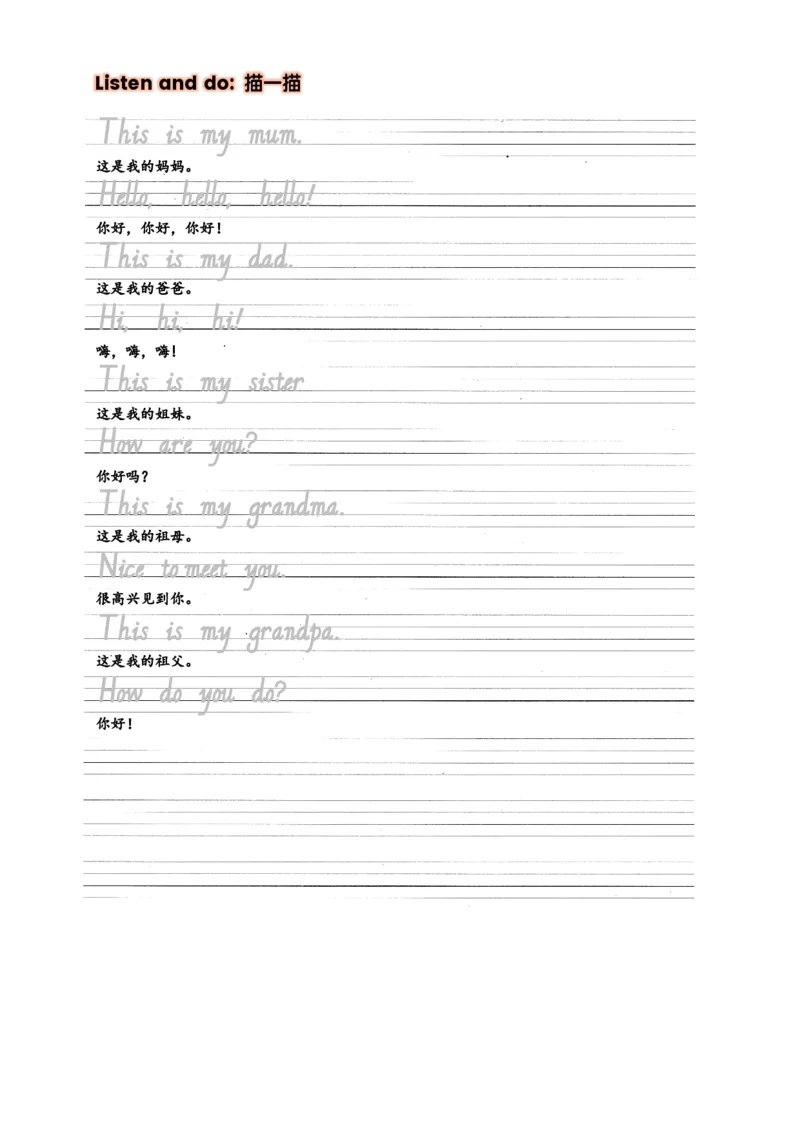 Listen and do: 描一描
This is my mum.
这是我的妈妈。
Hello, hello, hello!
你好，你好，你好！
This is my dad.
这是我的爸爸。
Hi, hi, hi!
嗨，嗨，嗨！
This is my sister
这是我的姐妹。
How are you?
你好吗？
This is my grandma.
这是我的祖母。
Nice to meet you.
很高兴见到你。
This is my grandpa.
这是我的祖父。
How do you do?
你好！